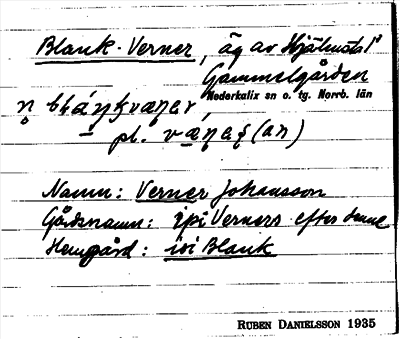 Blank-Verner, äg av Hjälmsta 1⁹
Gammelgården
Nederkalix sn o. tg. Norrb. län
pl.
Namn: Verner Johansson
Gårdsnamn: ipi Verners efter denne
Hemgård: ivi Blank
RUBEN DANIELSSON 1935